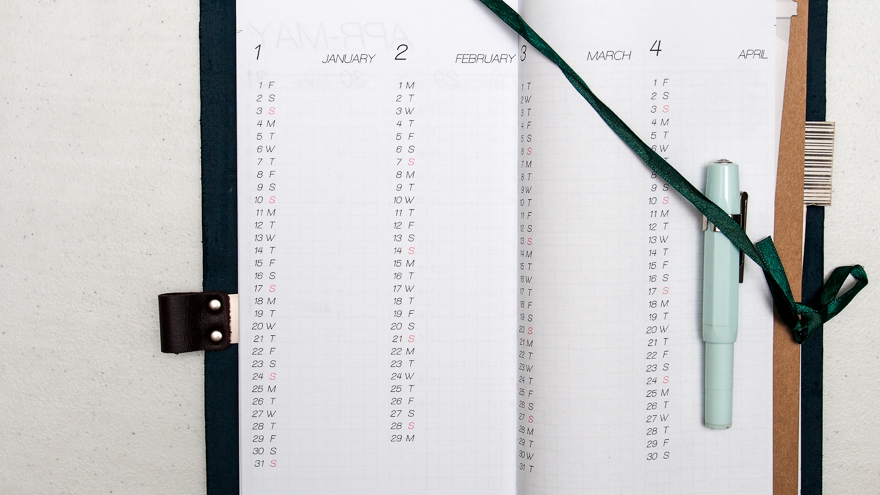 1 JANUARY
1 F
2 S
3 S
4 M
5 T
6 W
7 T
8 F
9 S
10 S
11 M
12 T
13 W
14 T
15 F
16 S
17 S
18 M
19 T
20 W
21 T
22 F
23 S
24 S
25 M
26 T
27 W
28 T
29 F
30 S
31 S
2 FEBRUARY
1 M
2 T
3 W
4 T
5 F
6 S
7 S
8 M
9 T
10 W
11 T
12 F
13 S
14 S
15 M
16 T
17 W
18 T
19 F
20 S
21 S
22 M
23 T
24 W
25 T
26 F
27 S
28 S
29 M
3 MARCH
1 T
2 W
3 T
4 F
5 S
6 S
7 M
8 T
9 W
10 T
11 F
12 S
13 S
14 M
15 T
16 W
17 T
18 F
19 S
20 S
21 M
22 T
23 W
24 T
25 F
26 S
27 S
28 M
29 T
30 W
31 T
4 APRIL
1 F
2 S
3 S
4 M
5 T
6 W
8
9 S
10 S
11 M
12 T
13 W
14 T
15 F
16 S
17 S
18 M
19 T
20 W
21 T
22 F
23 S
24 S
25 M
26 T
27 W
28 T
29 F
30 S